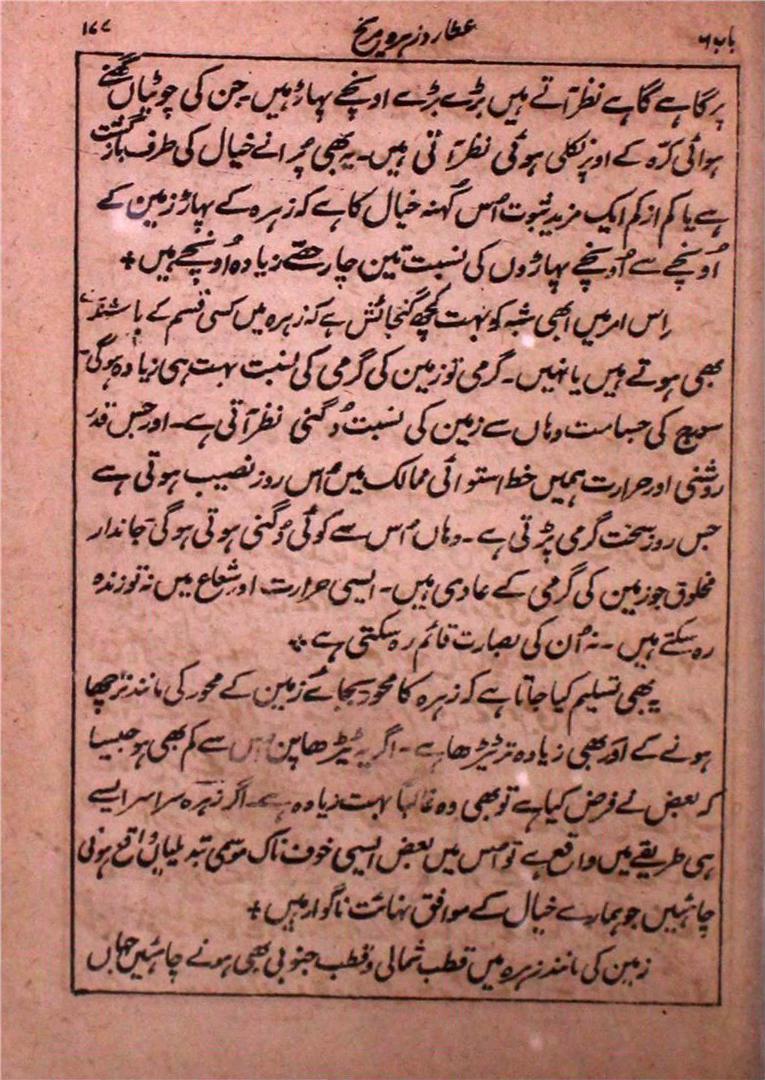 باب ۶ عطارد زہرہ و مریخ ۱۷۷
پر گاہے گاہے نظر آتے ہیں بڑے بڑے اونچے پہاڑ ہیں۔ جن کی چوٹیاں گھنے
ہوائی کرّہ کے اوپر نکلی ہوئی نظر آتی ہیں۔ یہ بھی پُرانے خیال کی طرف بازگشت
ہے یا کم از کم ایک مزید ثبوت اُس کُہنہ خیال کا ہے کہ زہرہ کے پہاڑ زمین کے
اُونچے سے اُونچے پہاڑوں کی نسبت تین چار حصّے زیادہ اُونچے ہیں +
اِس امر میں ابھی شبہ کو بہت کچھ گنجائش ہے کہ زہرہ میں کسی قسم کے باشندے
بھی ہوتے ہیں یا نہیں۔ گرمی تو زمین کی گرمی کی نسبت بہت ہی زیادہ ہوگی۔
سورج کی جسامت وہاں سے زمین کی نسبت دُگنی نظر آتی ہے۔ اور جس قدر
روشنی اور حرارت ہمیں خط استوائی ممالک میں اُس روز نصیب ہوتی ہے
جس روز سخت گرمی پڑتی ہے۔ وہاں اُس سے کوئی دُگنی ہوتی ہوگی۔ جاندار
مخلوق جو زمین کی گرمی کے عادی ہیں۔ ایسی حرارت اور شعاع میں نہ تو زندہ
رہ سکتے ہیں۔ نہ اُن کی بصارت قائم رہ سکتی ہے ٭
یہ بھی تسلیم کیا جاتا ہے کہ زہرہ کا محور بجائے زمین کے محور کی مانند ترچھا
ہونے کے اَور بھی زیادہ تر ٹیڑھا ہے۔ اگر یہ ٹیڑھا پن اس سے کم بھی ہو جیسا
کہ بعض نے فرض کیا ہے تو بھی وہ غالباً بہت زیادہ ہے۔ اگر زہرہ سراسر ایسے
ہی طریقے میں واقع ہے تو اس میں بعض ایسی خوف ناک موسمی تبدیلیاں واقع ہونی
چاہئیں جو ہمارے خیال کے موافق نہائت ناگوار ہیں +
زمین کی مانند زہرہ میں قطب شمالی و قطب جنوبی بھی ہونے چاہئیں جہاں